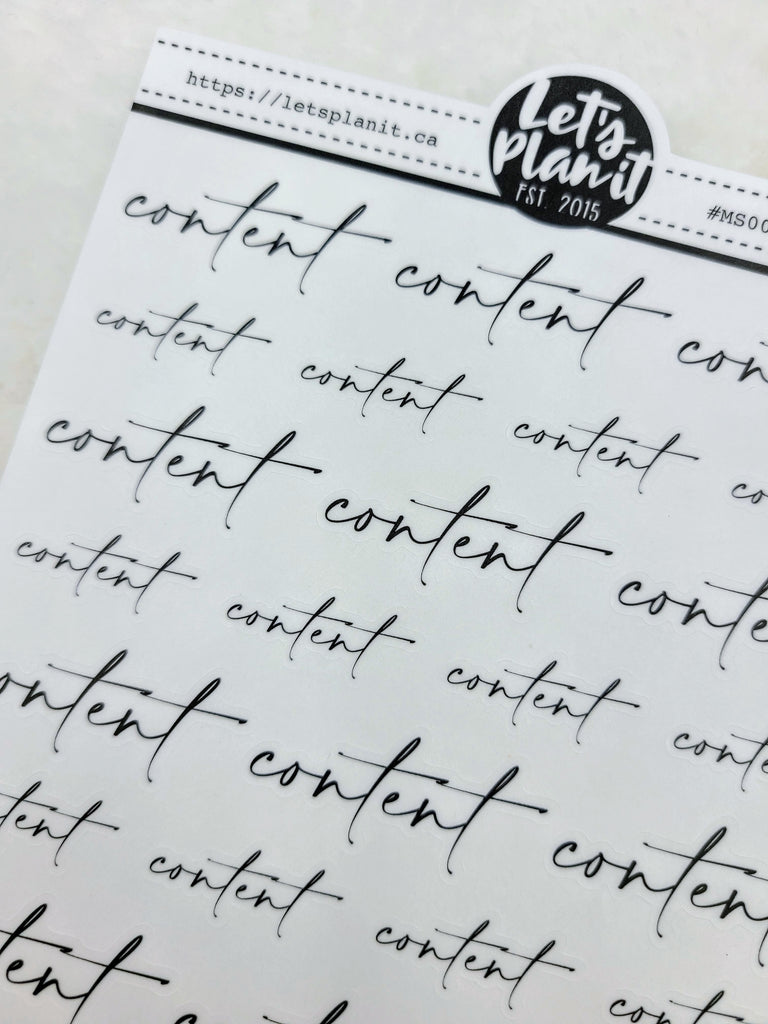 https://letsplanit.ca
Let's
planit
EST. 2015
#MS00
content content con
content content content co
content content conte
content content content conte
ontent content content
tent content content co
tent